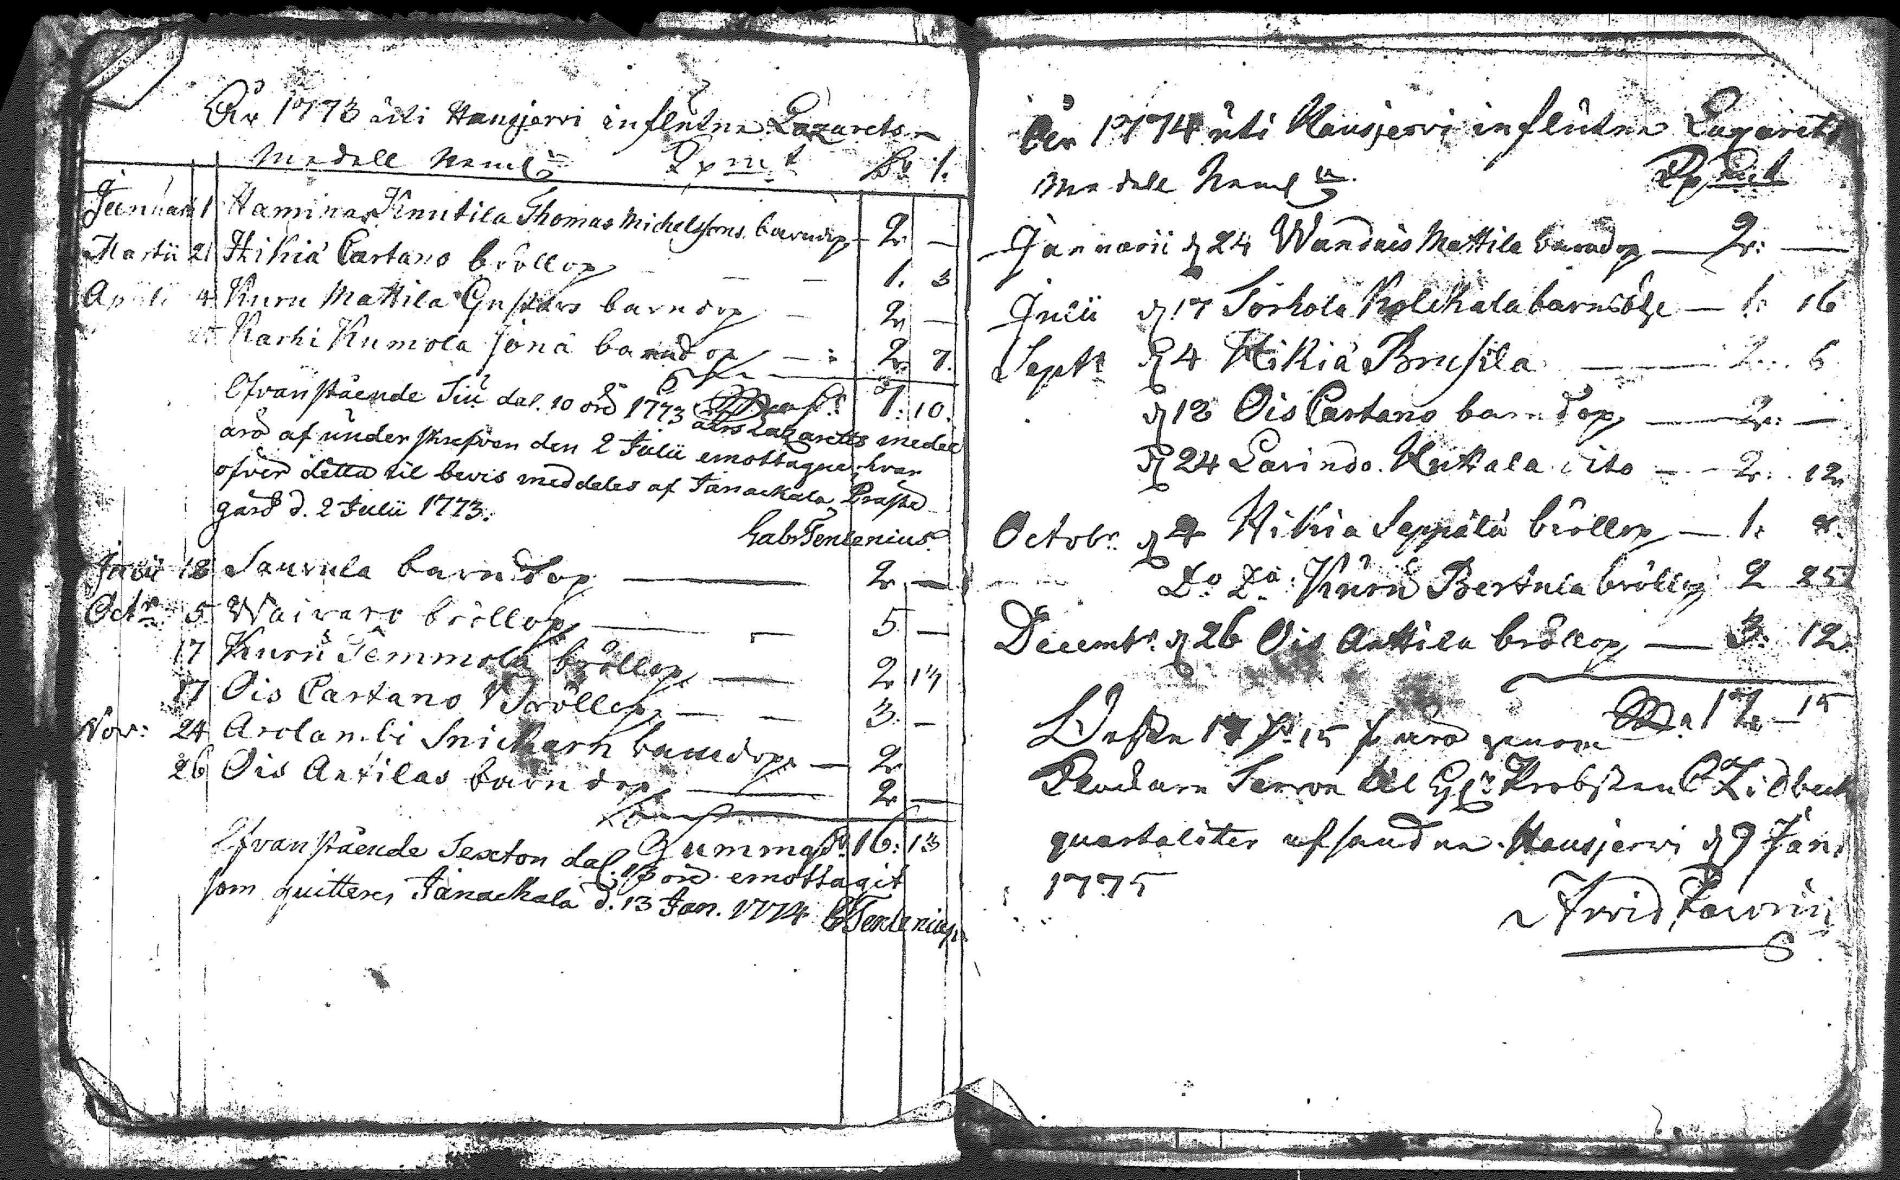 År 1773 uti Hausjervi influtne Lazarets-
Medell Neml:n Kpmt Dr 1.
Januarii 1 Haminas Knutila Thomas Michelssons barndop - 2 —
Martii 21 Hikiä Cartano bröllop - - - 1. 3
Aprili 4 Kuru Mattila Gustavs barndop - 2 —
25 Karhi Kumola Jona barndop — : 2 7.
Ofvanstående Siu dal. 10 öre 1773 7: 10.
års Lazaretts medel
äro af underskrefven den 2 Julii emottagne, hvar
öfver detta til bevis meddeles af Janackala Præste
gård d. 2 Julii 1773.
Gabr Tenlenius
Julii 18 Saurula barndop — 2 —
Octr 5 Waivaro bröllop — 5 —
17 Kuru Temmola bröllop — 2 17
17 Ois Cartano Bröllop — — 3. —
Nov: 24 Arolambi Snickarn barndop — 2
26 Ois Antilas barndop — 2 —
Summa Dr 16: 13
Ofvanstående Sexton dal. 13 öre emottagit
som quitteres Janackala d. 13 Jan. 1774 G Tenlenius
År 1774 uti Hausjervi influtne Lazarets
Medell Neml:n
Januarii d 24 Wandais Mattila barndop — 2: —
Julii d 17 Torhola Kolckala barnsöhl — 1: 16
Septr d 4 Hikiä Brusila — 2: 6
d 18 Ois Cartano barndop — 2: —
d 24 Lavindo Huttala dito — 2: 12
Octobr d 2 Hikia Seppälä bröllop — 1:
Do Do: Kuru Bertula bröllop 2 25
Decembr d 26 Ois Anttila bröllop — 3: 12
Sma 17 — 15
Desse 17 Dr 15 äro genom
Klockarn Serron til H:r Probsten Lidbeck
quartaliter afsandne. Hausjervi d 9 Jan:
1775
Arvid Favorin